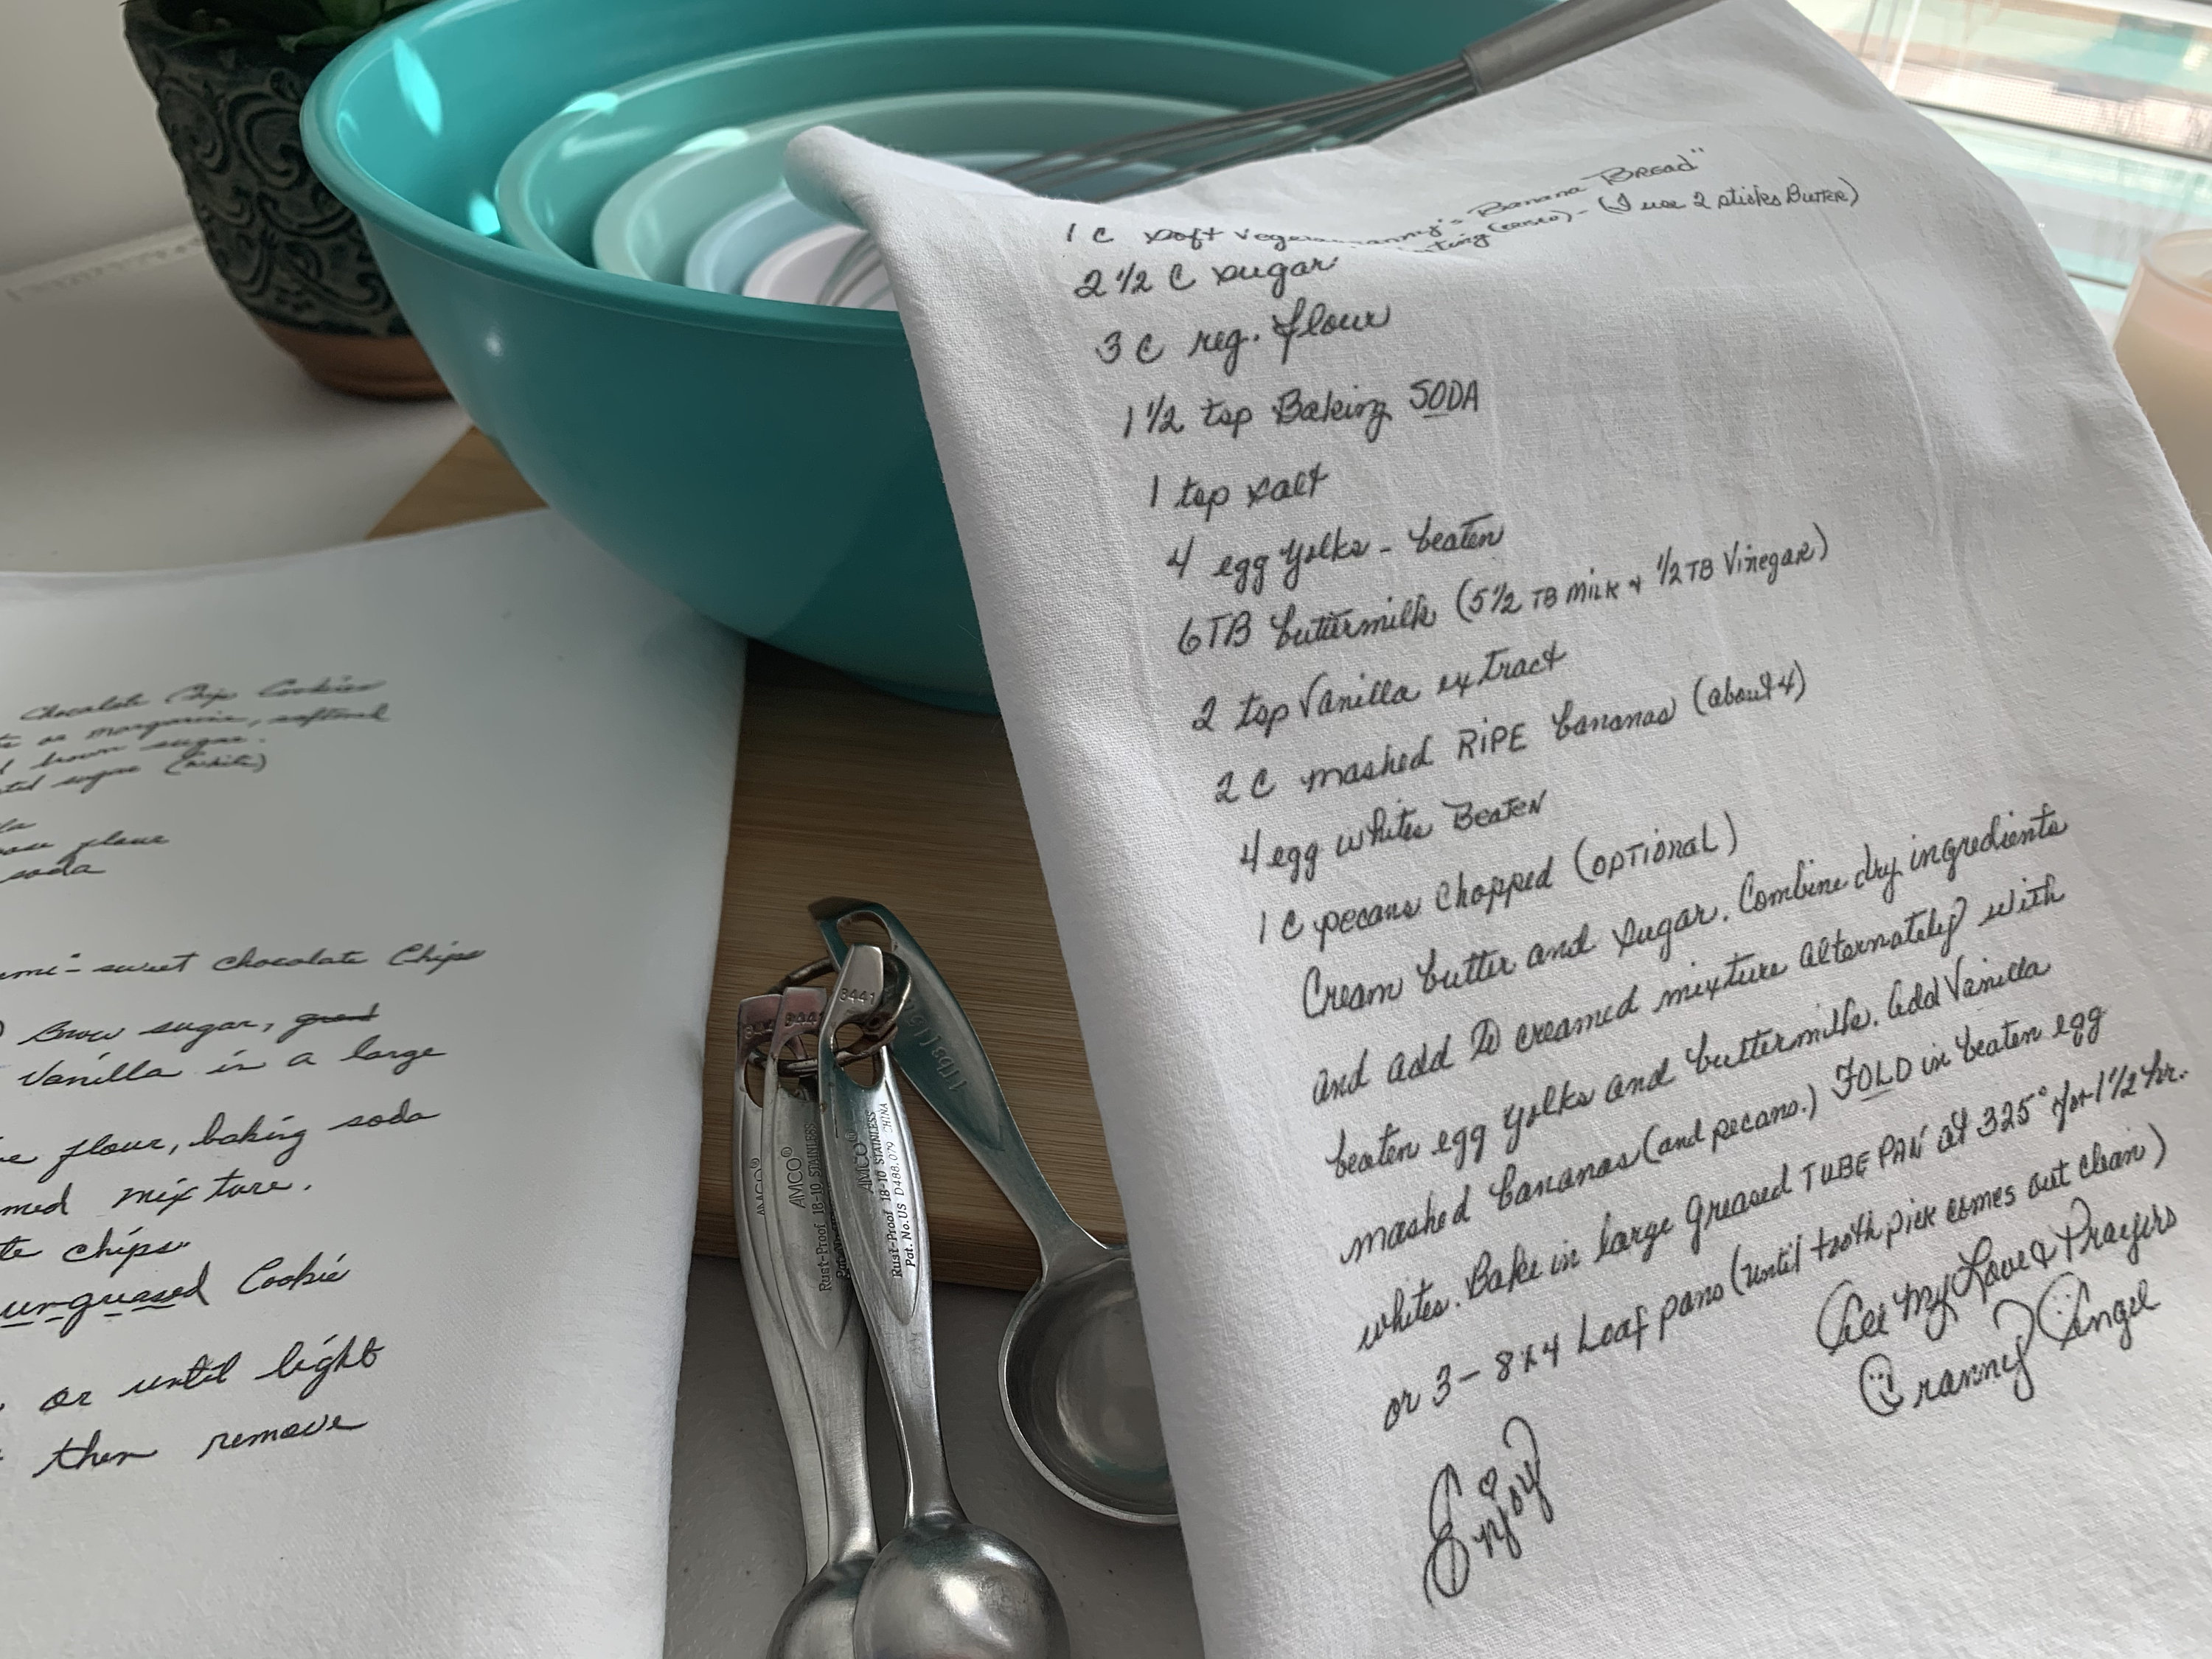 Chocolate Chip Cookies
or margarine, softened
brown sugar.
sugar (white)
flour
soda
sweet chocolate Chips
Brow sugar,
Vanilla in a large
flour, baking soda
mixture.
chips
ungreased Cookie
or until light
then remove
Banana Bread"
1 C soft (crisco) - (I use 2 sticks Butter)
2 1/2 C sugar
3 C reg. flour
1 1/2 tsp Baking SODA
1 tsp salt
4 egg yolks - beaten
6 TB buttermilk (5 1/2 TB Milk + 1/2 TB Vinegar)
2 tsp Vanilla extract
2 C mashed RIPE bananas (about 4)
4 egg whites BEATEN
1 C pecans chopped (OPTIONAL)
Cream butter and sugar. Combine dry ingredients
and add to creamed mixture alternately with
beaten egg yolks and buttermilk. Add Vanilla
mashed bananas (and pecans.) FOLD in beaten egg
whites. Bake in large greased TUBE PAN at 325° for 1 1/2 hr.
or 3 - 8x4 Loaf pans (until toothpick comes out clean)
All My Love & Prayers
Granny Angel
Enjoy
3441
3441
AMCO®
AMCO®
Rust-Proof 18-10 STAINLESS
AMCO®
Rust-Proof 18-10 STAINLESS
Pat. No. US D488,079 CHINA